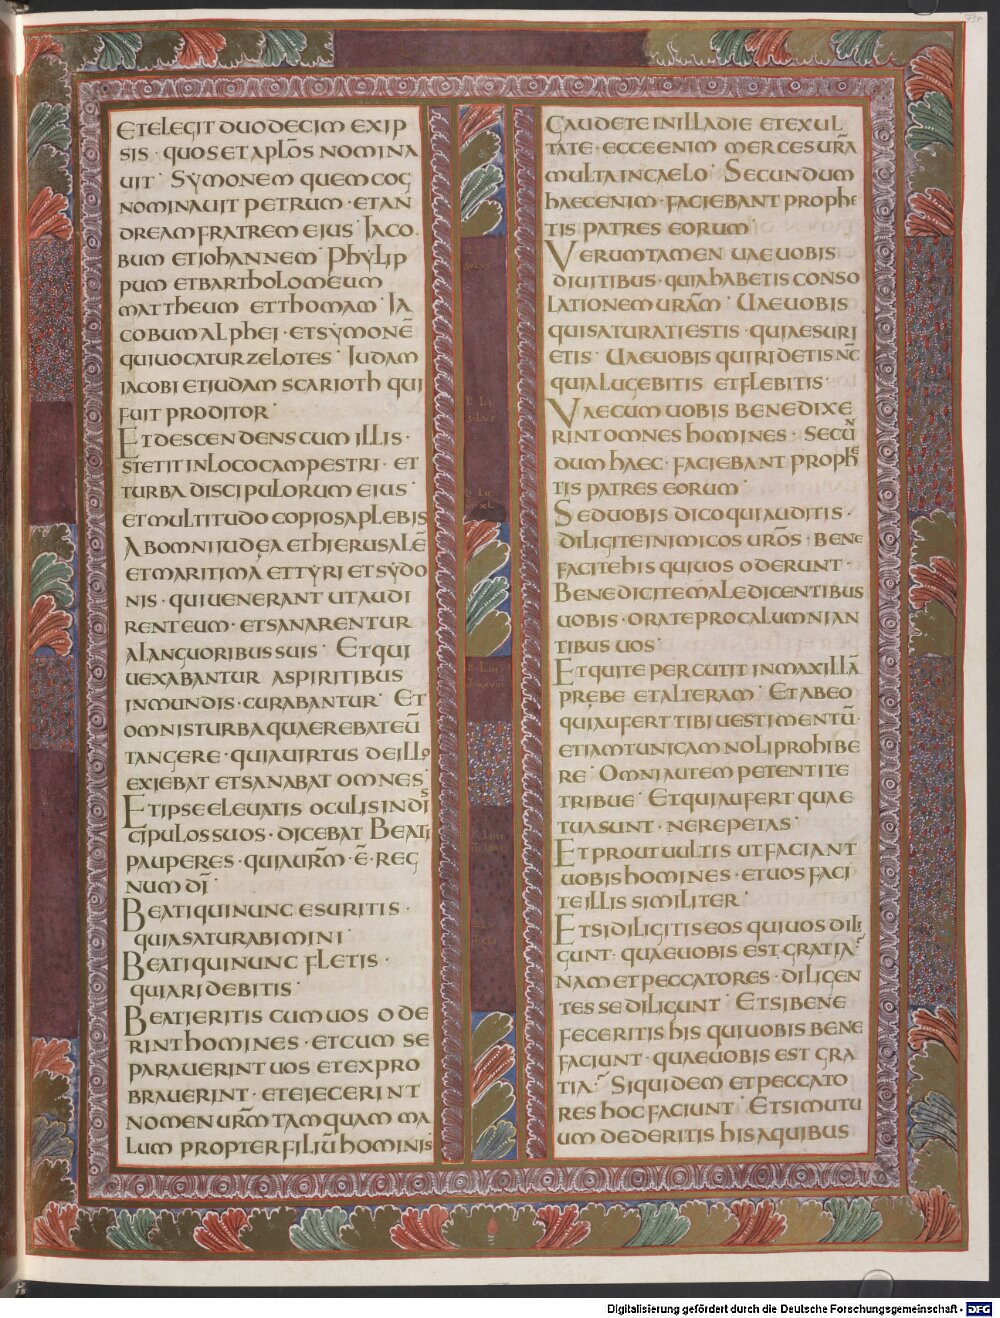 73r
ETELEGIT DUODECIM EXIP
SIS · QUOSETAPLŌS NOMINA
UIT · SYMONEM QUEM COG
NOMINAUIT PETRUM · ETAN
DREAM FRATREM EIUS · IACO
BUM ETIOHANNEM · PHYLIP
PUM ETBARTHOLOMEUM
MATTHEUM ETTHOMAM · IA
COBUM ALPHEI · ETSYMONĒ
QUIUOCATUR ZELOTES · IUDAM
IACOBI ETIUDAM SCARIOTH QUI
FUIT PRODITOR ·
ETDESCENDENS CUM ILLIS ·
STETIT INLOCO CAMPESTRI · ET
TURBA DISCIPULORUM EIUS ·
ETMULTITUDO COPIOSA PLEBIS
ABOMNI IUDĘA ETHIERUSALĒ
ETMARITIMA ETTYRI ETSYDO
NIS · QUIUENERANT UTAUDI
RENTEUM · ETSANARENTUR
ALANGUORIBUS SUIS · ETQUI
UEXABANTUR ASPIRITIBUS
INMUNDIS · CURABANTUR · ET
OMNISTURBA QUAEREBATEŪ
TANGERE · QUIAUIRTUS DEILLO
EXIEBAT ETSANABAT OMNES ·
ETIPSE ELEUATIS OCULIS INDIS
CIPULOS SUOS · DICEBAT BEATI
PAUPERES · QUIAURM̄ · Ē · REG
NUM DĪ ·
BEATIQUINUNC ESURITIS ·
QUIASATURABIMINI ·
BEATIQUINUNC FLETIS ·
QUIARIDEBITIS ·
BEATIERITIS CUMUOS ODE
RINTHOMINES · ETCUM SE
PARAUERINT UOS ETEXPRO
BRAUERINT · ETEIECERINT
NOMEN URM̄ TAMQUAM MA
LUM PROPTER FILIŪ HOMINIS
GAUDETE INILLADIE ETEXUL
TATE · ECCEENIM MERCES URA
MULTA INCAELO · SECUNDUM
HAECENIM · FACIEBANT PROPHE
TIS PATRES EORUM ·
VERUMTAMEN UAEUOBIS
DIUITIBUS · QUIAHABETIS CONSO
LATIONEM URAM̄ · UAEUOBIS
QUISATURATIESTIS · QUIAESURI
ETIS · UAEUOBIS QUIRIDETIS NC̄
QUIALUGEBITIS ETFLEBITIS ·
VAECUM UOBIS BENEDIXE
RINT OMNES HOMINES · SECŪ
DUM HAEC · FACIEBANT PROPHE
TIS PATRES EORUM ·
SEDUOBIS DICO QUIAUDITIS ·
DILIGITE INIMICOS UROS̄ · BENE
FACITEHIS QUIUOS ODERUNT ·
BENEDICITE MALEDICENTIBUS
UOBIS · ORATE PROCALUMNIAN
TIBUS UOS ·
ETQUITE PERCUTIT INMAXILLĀ
PREBE ETALTERAM · ETABEO
QUIAUFERT TIBI UESTIMENTŪ ·
ETIAMTUNICAM NOLIPROHIBE
RE · OMNIAUTEM PETENTITE
TRIBUE · ETQUIAUFERT QUAE
TUASUNT · NEREPETAS ·
ETPROUT UULTIS UTFACIANT
UOBISHOMINES · ETUOS FACI
TEILLIS SIMILITER ·
ETSIDILIGITIS EOS QUIUOS DILI
GUNT · QUAEUOBIS EST GRATIA ·
NAMETPECCATORES · DILIGEN
TES SE DILIGUNT · ETSIBENE
FECERITIS HIS QUIUOBIS BENE
FACIUNT · QUAEUOBIS EST GRA
TIA · SIQUIDEM ETPECCATO
RES HOC FACIUNT · ETSIMUTU
UM DEDERITIS HISAQUIBUS
Digitalisierung gefördert durch die Deutsche Forschungsgemeinschaft - DFG